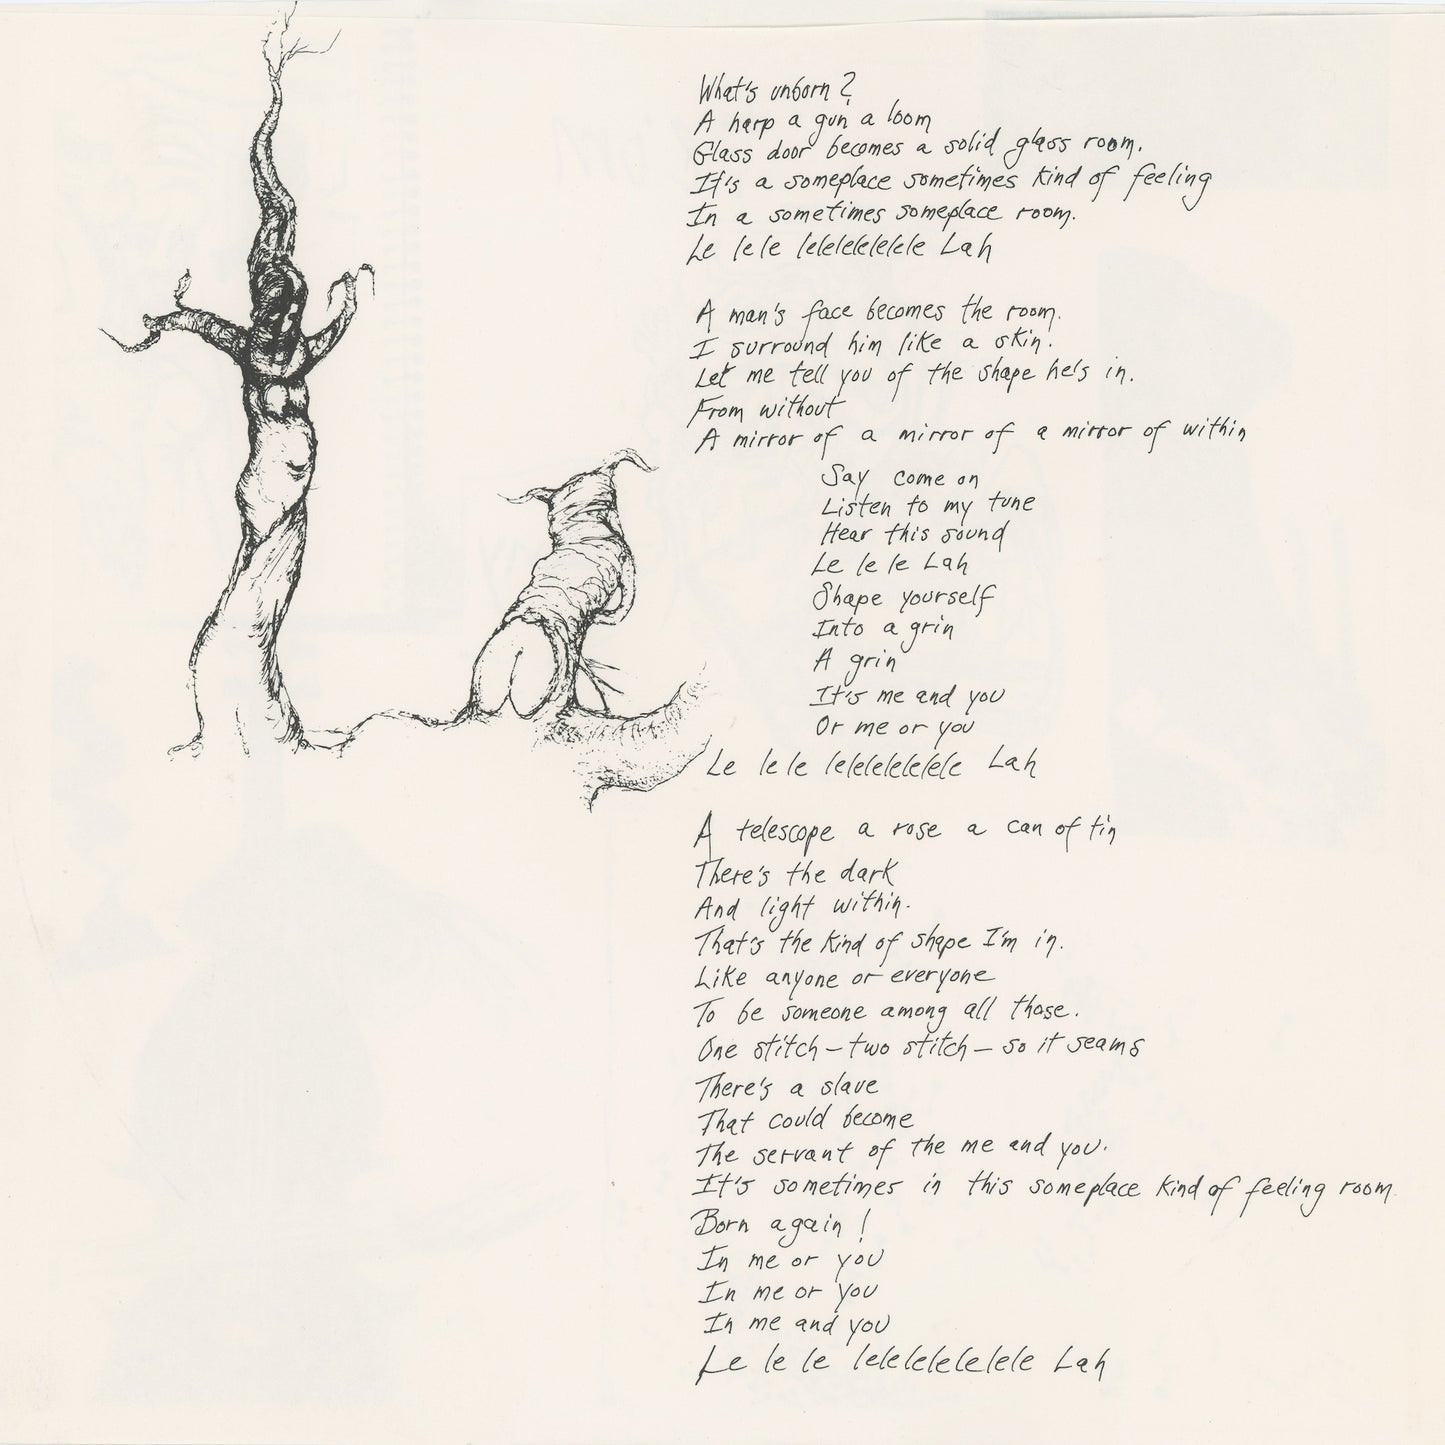 What's unborn?
A harp a gun a loom
Glass door becomes a solid glass room.
It's a someplace sometimes kind of feeling
In a sometimes someplace room.
Le le le lelelelelelele Lah
A man's face becomes the room.
I surround him like a skin.
Let me tell you of the shape he's in.
From without
A mirror of a mirror of a mirror of within
Say come on
Listen to my tune
Hear this sound
Le le le Lah
Shape yourself
Into a grin
A grin
It's me and you
Or me or you
Le le le lelelelelelele Lah
A telescope a rose a can of tin
There's the dark
And light within.
That's the kind of shape I'm in.
Like anyone or everyone
To be someone among all those.
One stitch – two stitch – so it seams
There's a slave
That could become
The servant of the me and you.
It's sometimes in this someplace kind of feeling room.
Born again!
In me or you
In me or you
In me and you
Le le le lelelelelelele Lah